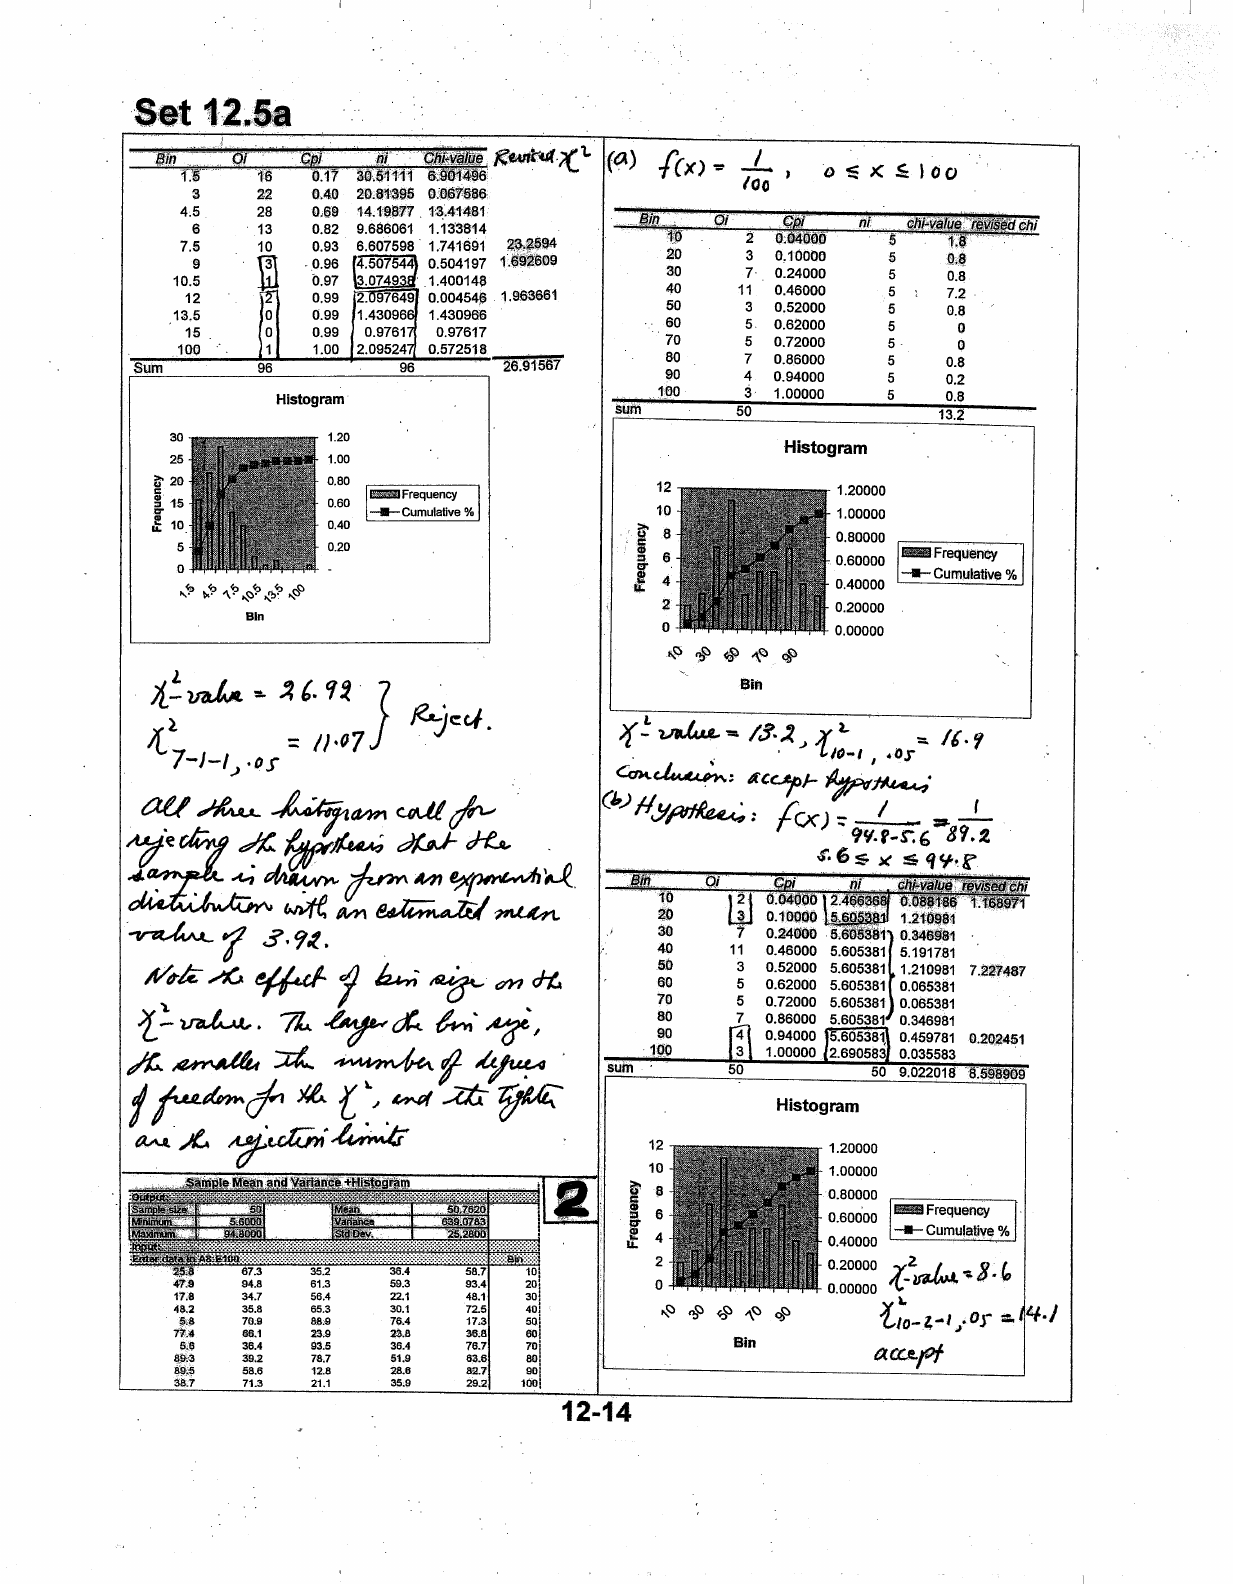 Set 12.5a
Bin Oi Cpi ni Chi-value Revised χ²
1.5 16 0.17 30.51111 6.901496
3 22 0.40 20.81395 0.067586
4.5 28 0.69 14.19877 13.41481
6 13 0.82 9.686061 1.133814
7.5 10 0.93 6.607598 1.741691 23.2594
9 3 0.96 4.507544 0.504197 1.692609
10.5 1 0.97 3.074938 1.400148
12 2 0.99 2.097649 0.004546 1.963661
13.5 0 0.99 1.430966 1.430966
15 0 0.99 0.97617 0.97617
100 1 1.00 2.095247 0.572518
Sum 96 96 26.91567
Histogram
30 1.20
25 1.00
20 0.80
15 0.60
10 0.40
5 0.20
0 -
Frequency
Frequency
Cumulative %
1.5 4.5 7.5 10.5 13.5 100
Bin
χ²-value = 26.92
χ²7-1-1, .05 = 11.07 } Reject.
All three histogram call for
rejecting the hypothesis that the
sample is drawn from an exponential
distribution with an estimated mean
value of 3.92.
Note the effect of bin size on the
χ²-value. The larger the bin size,
the smaller the number of degrees
of freedom for the χ², and the tighter
are the rejection limits
Sample Mean and Variance +Histogram
Output:
Sample size 50 Mean 50.7620
Minimum 5.6000 Variance 639.0783
Maximum 94.8000 Std Dev. 25.2800
Input:
Enter data in A8:E100 Bin
25.8 67.3 35.2 36.4 58.7 10
47.9 94.8 61.3 59.3 93.4 20
17.8 34.7 56.4 22.1 48.1 30
48.2 35.8 65.3 30.1 72.5 40
5.8 70.9 88.9 76.4 17.3 50
77.4 66.1 23.9 23.8 36.8 60
5.6 36.4 93.5 36.4 76.7 70
89.3 39.2 78.7 51.9 63.6 80
89.5 58.6 12.8 28.6 82.7 90
38.7 71.3 21.1 35.9 29.2 100
2
(a) f(x) = 1/100, 0 ≤ x ≤ 100
Bin Oi Cpi ni chi-value revised chi
10 2 0.04000 5 1.8
20 3 0.10000 5 0.8
30 7 0.24000 5 0.8
40 11 0.46000 5 7.2
50 3 0.52000 5 0.8
60 5 0.62000 5 0
70 5 0.72000 5 0
80 7 0.86000 5 0.8
90 4 0.94000 5 0.2
100 3 1.00000 5 0.8
sum 50 13.2
Histogram
12 1.20000
10 1.00000
8 0.80000
6 0.60000
4 0.40000
2 0.20000
0 0.00000
Frequency
Frequency
Cumulative %
10 30 50 70 90
Bin
χ²-value = 13.2, χ²10-1, .05 = 16.9
Conclusion: accept hypothesis
(b) Hypothesis: f(x) = 1/94.8-5.6 = 1/89.2
5.6 ≤ x ≤ 94.8
Bin Oi Cpi ni chi-value revised chi
10 2 0.04000 2.466368 0.088186 1.168971
20 3 0.10000 5.605381 1.210981
30 7 0.24000 5.605381 0.346981
40 11 0.46000 5.605381 5.191781
50 3 0.52000 5.605381 1.210981 7.227487
60 5 0.62000 5.605381 0.065381
70 5 0.72000 5.605381 0.065381
80 7 0.86000 5.605381 0.346981
90 4 0.94000 5.605381 0.459781 0.202451
100 3 1.00000 2.690583 0.035583
sum 50 50 9.022018 8.598909
Histogram
12 1.20000
10 1.00000
8 0.80000
6 0.60000
4 0.40000
2 0.20000
0 0.00000
Frequency
Frequency
Cumulative %
10 30 50 70 90
Bin
χ²-value = 8.6
χ²10-2-1, .05 = 14.1
accept
12-14